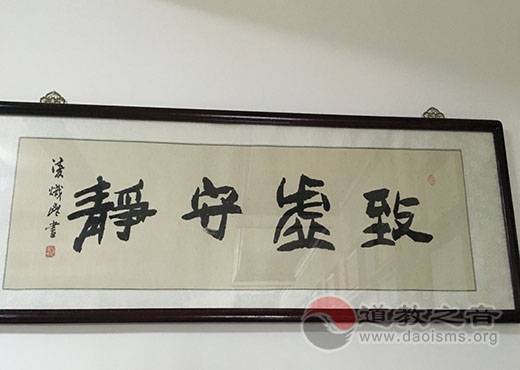 致虛守靜
書
道教之音
www.daoisms.org